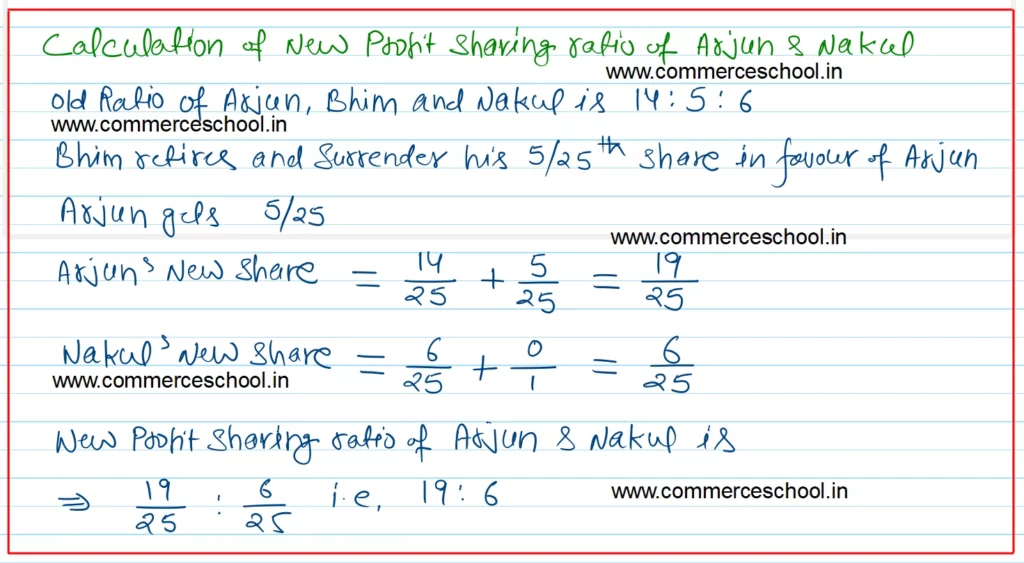 Calculation of New Profit sharing ratio of Arjun & Nakul
www.commerceschool.in
old Ratio of Arjun, Bhim and Nakul is 14 : 5 : 6
www.commerceschool.in
Bhim retires and Surrender his 5/25th share in favour of Arjun
Arjun gets 5/25
www.commerceschool.in
Arjun's New Share = 14/25 + 5/25 = 19/25
Nakul's New Share = 6/25 + 0/1 = 6/25
www.commerceschool.in
New Profit Sharing ratio of Arjun & Nakul is
⇒ 19/25 : 6/25 i.e, 19 : 6
www.commerceschool.in